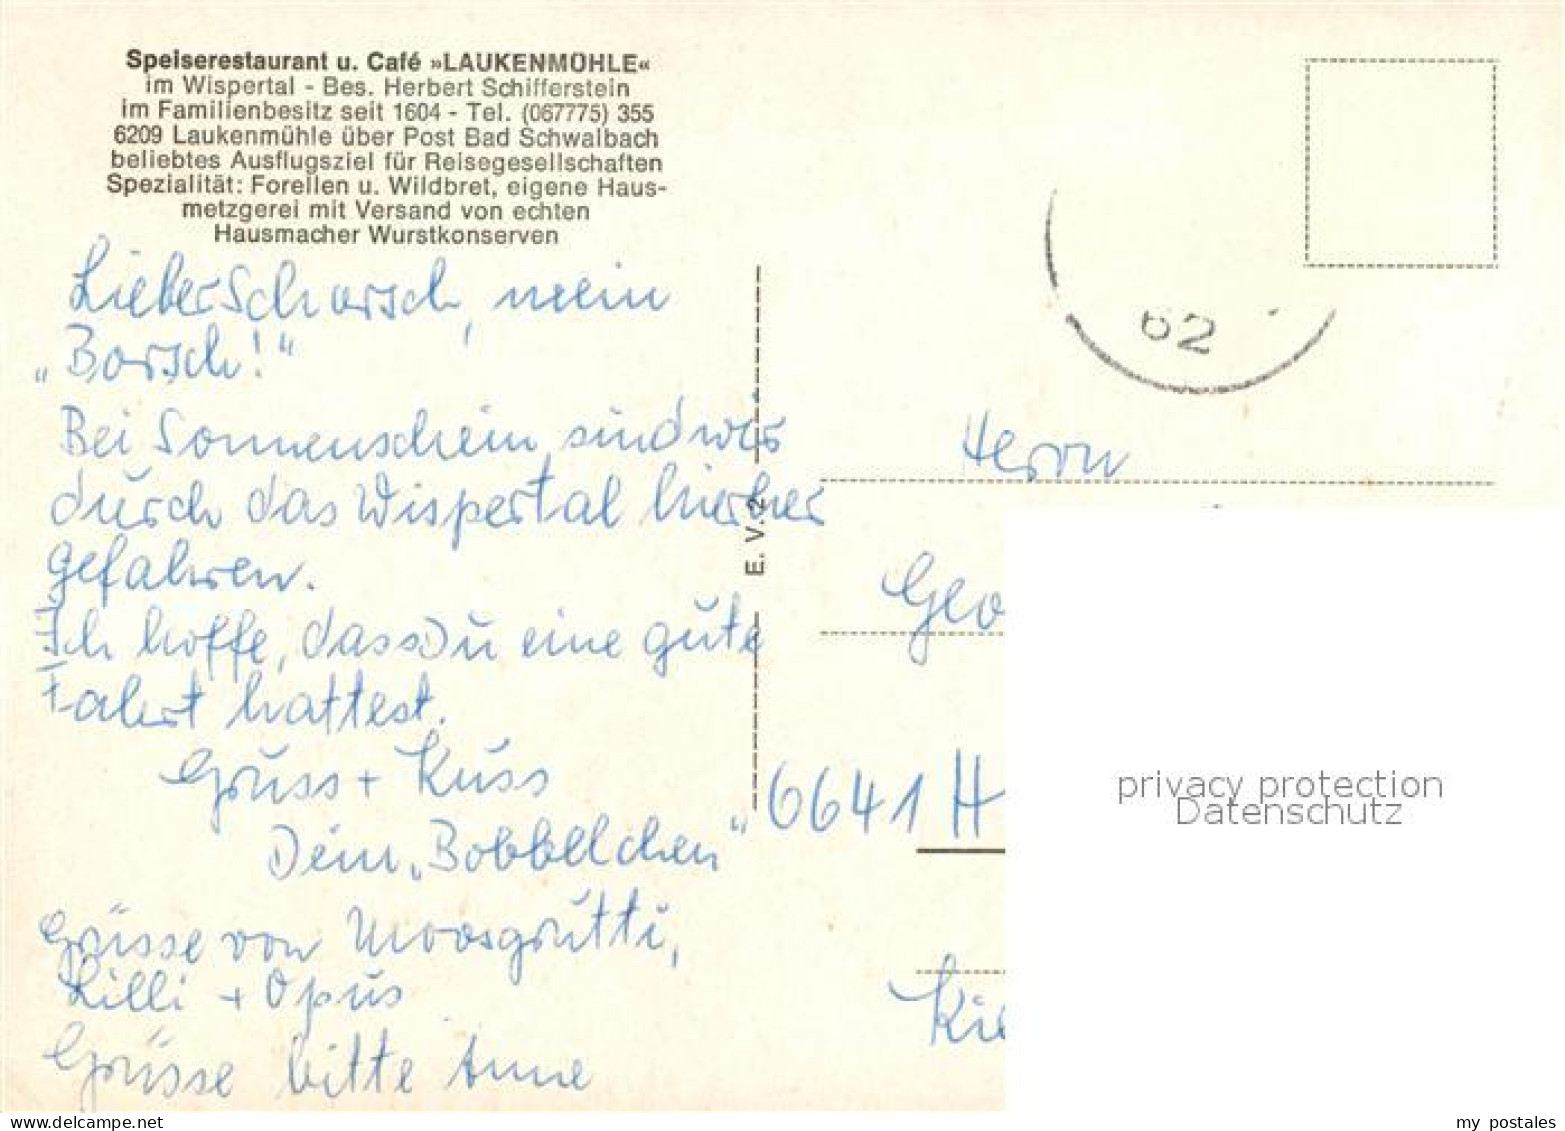 Speiserestaurant u. Café »LAUKENMÜHLE«
im Wispertal - Bes. Herbert Schifferstein
im Familienbesitz seit 1604 - Tel. (067775) 355
6209 Laukenmühle über Post Bad Schwalbach
beliebtes Ausflugsziel für Reisegesellschaften
Spezialität: Forellen u. Wildbret, eigene Haus-
metzgerei mit Versand von echten
Hausmacher Wurstkonserven
Lieber Schorsch, mein
„Borsch!"
Bei Sonnenschein sind wir
durch das Wispertal hierher
gefahren.
Ich hoffe, dass Du eine gute
Fahrt hattest.
Gruss + Kuss
Dein „Bobbelchen"
Grüsse von Moosgrutti,
Lilli + Opus
Grüsse bitte Anne
E. V. 2
62
Herrn
Geo
6641 H
Kie
privacy protection
Datenschutz
my postales